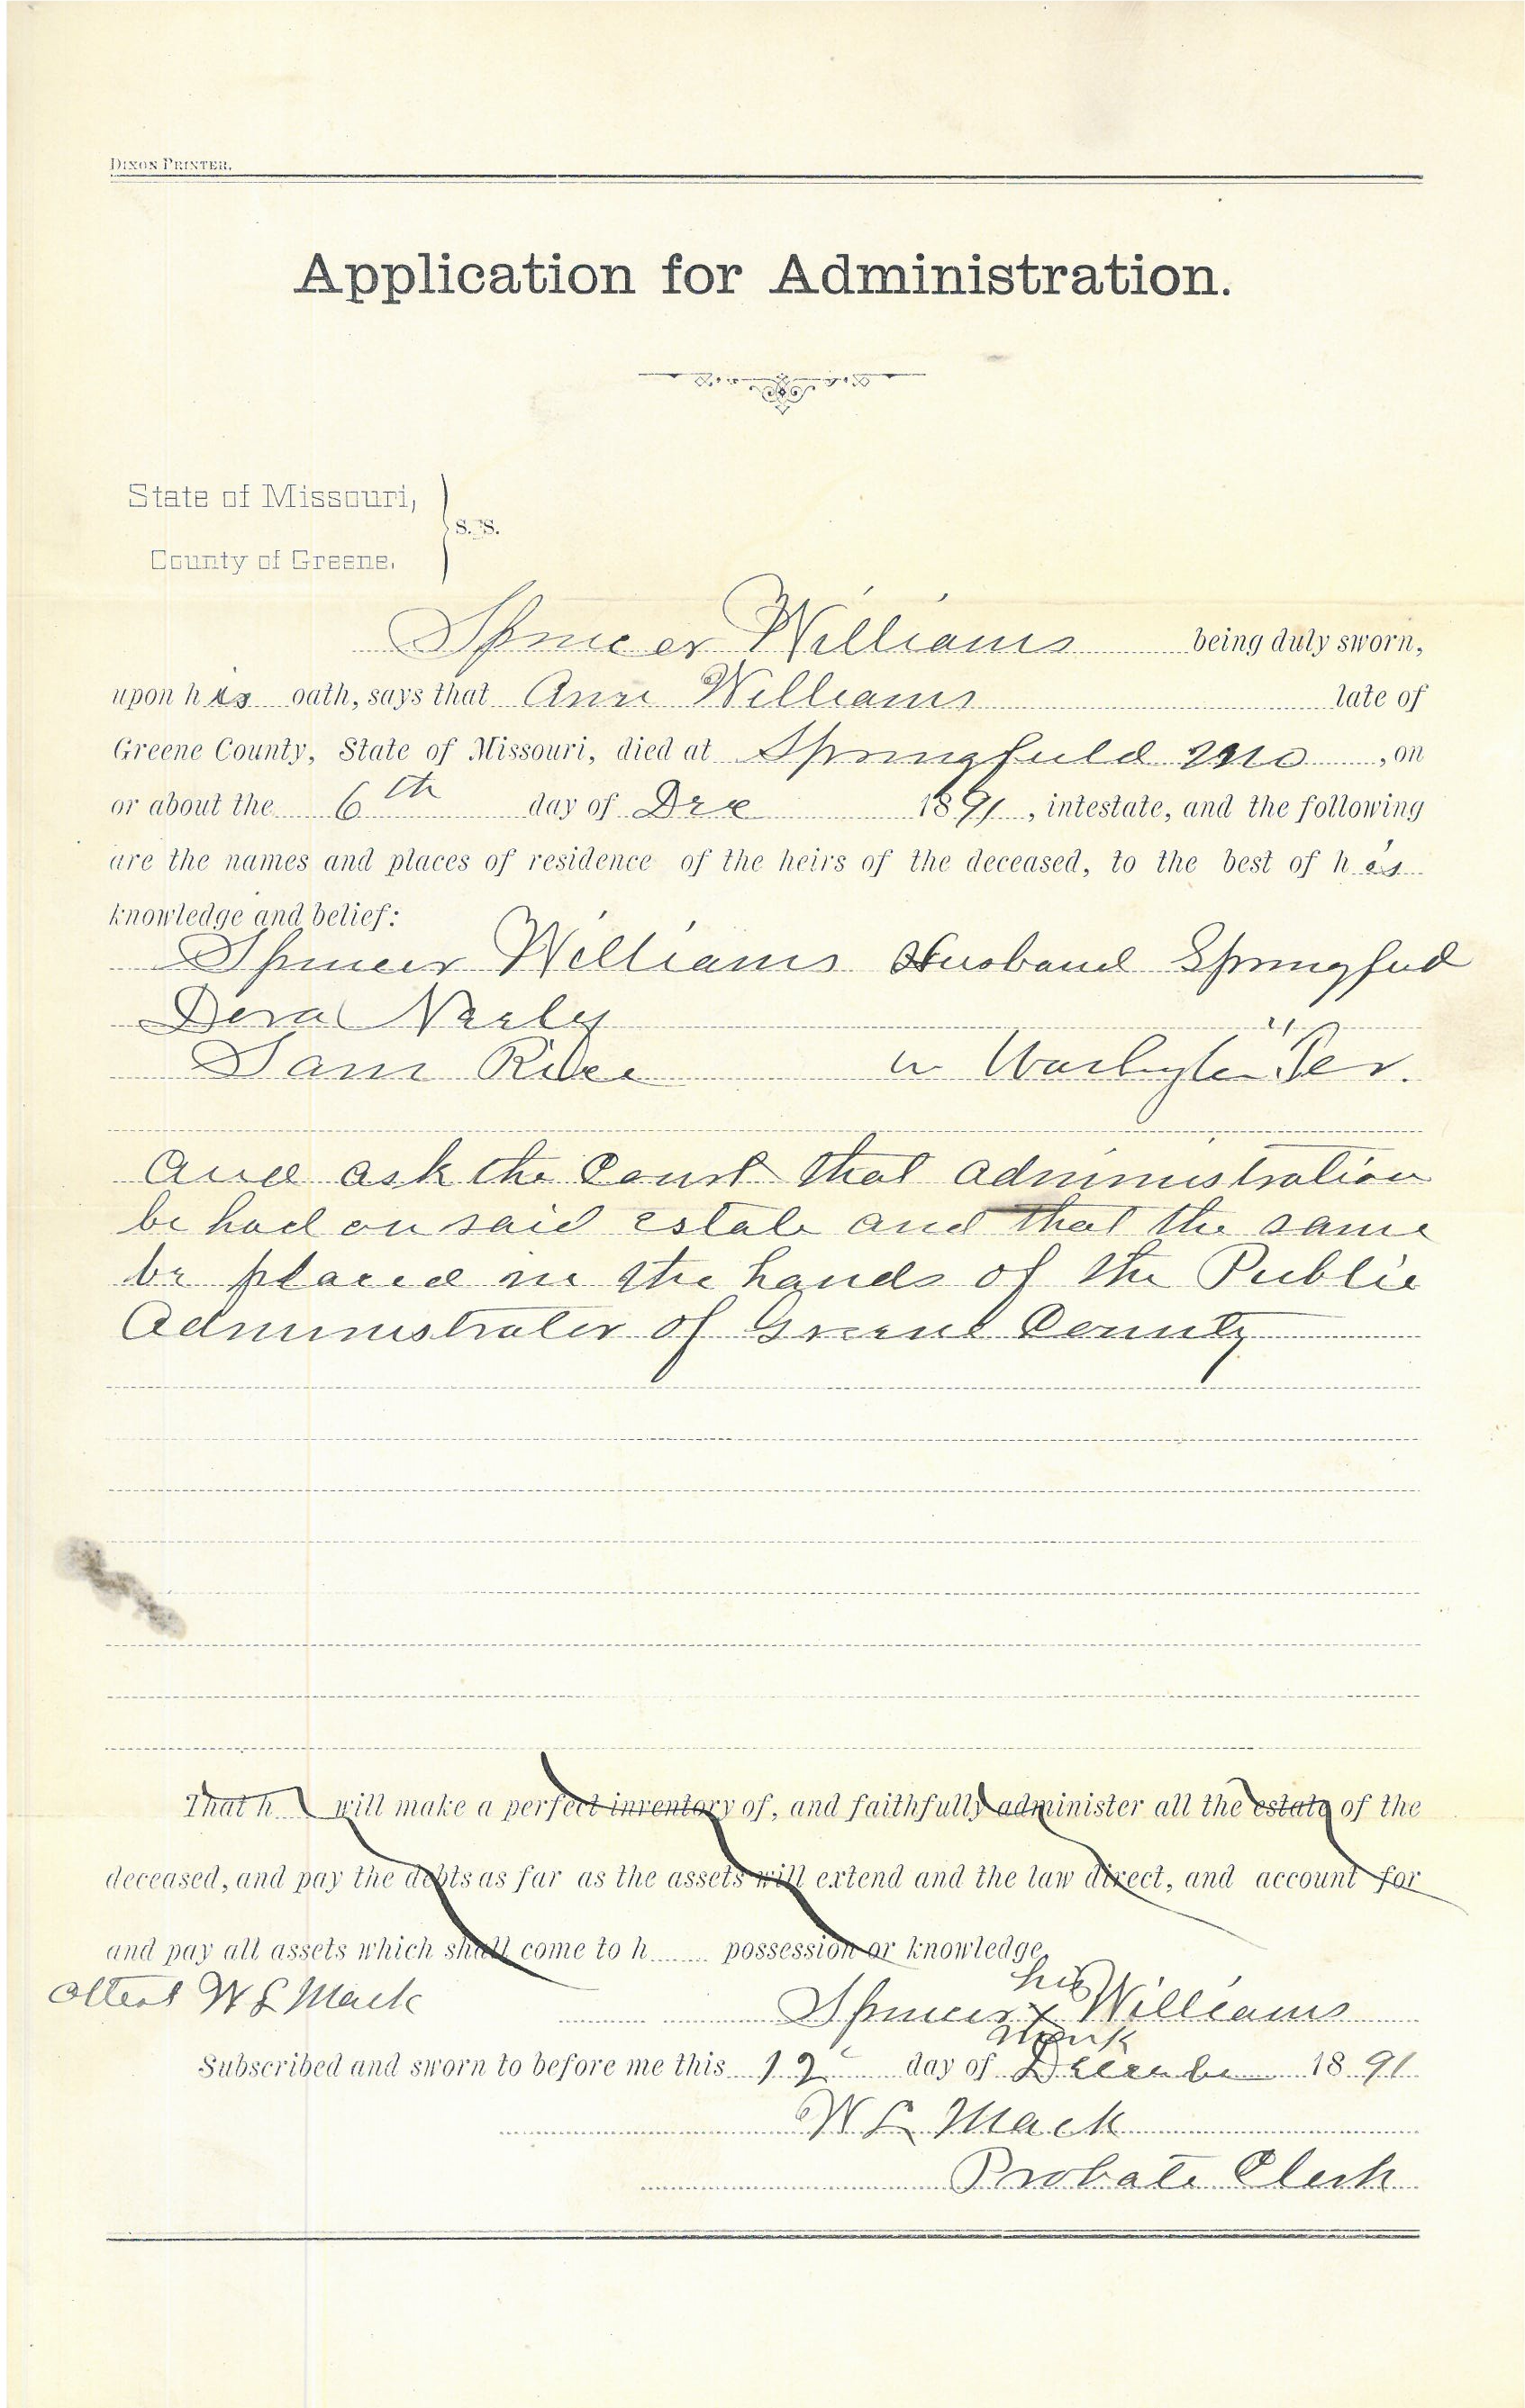 DIXON PRINTER.
Application for Administration.
State of Missouri,
S. S.
County of Greene.
Spencer Williams being duly sworn,
upon his oath, says that Ann Williams late of
Greene County, State of Missouri, died at Springfield Mo, on
or about the 6th day of Dec 1891, intestate, and the following
are the names and places of residence of the heirs of the deceased, to the best of his
knowledge and belief:
Spencer Williams Husband Springfield
Dora Neely "
Sam in Washington Ter.
and ask the Court that administration
be had on said estate and that the same
be placed in the hands of the Public
Administrator of Greene County
That h will make a perfect inventory of, and faithfully administer all the estate of the
deceased, and pay the debts as far as the assets will extend and the law direct, and account for
and pay all assets which shall come to h possession or knowledge.
his
attest W L Mack Spencer x Williams
mark
Subscribed and sworn to before me this 12 day of December 1891
W L Mack
Probate Clerk